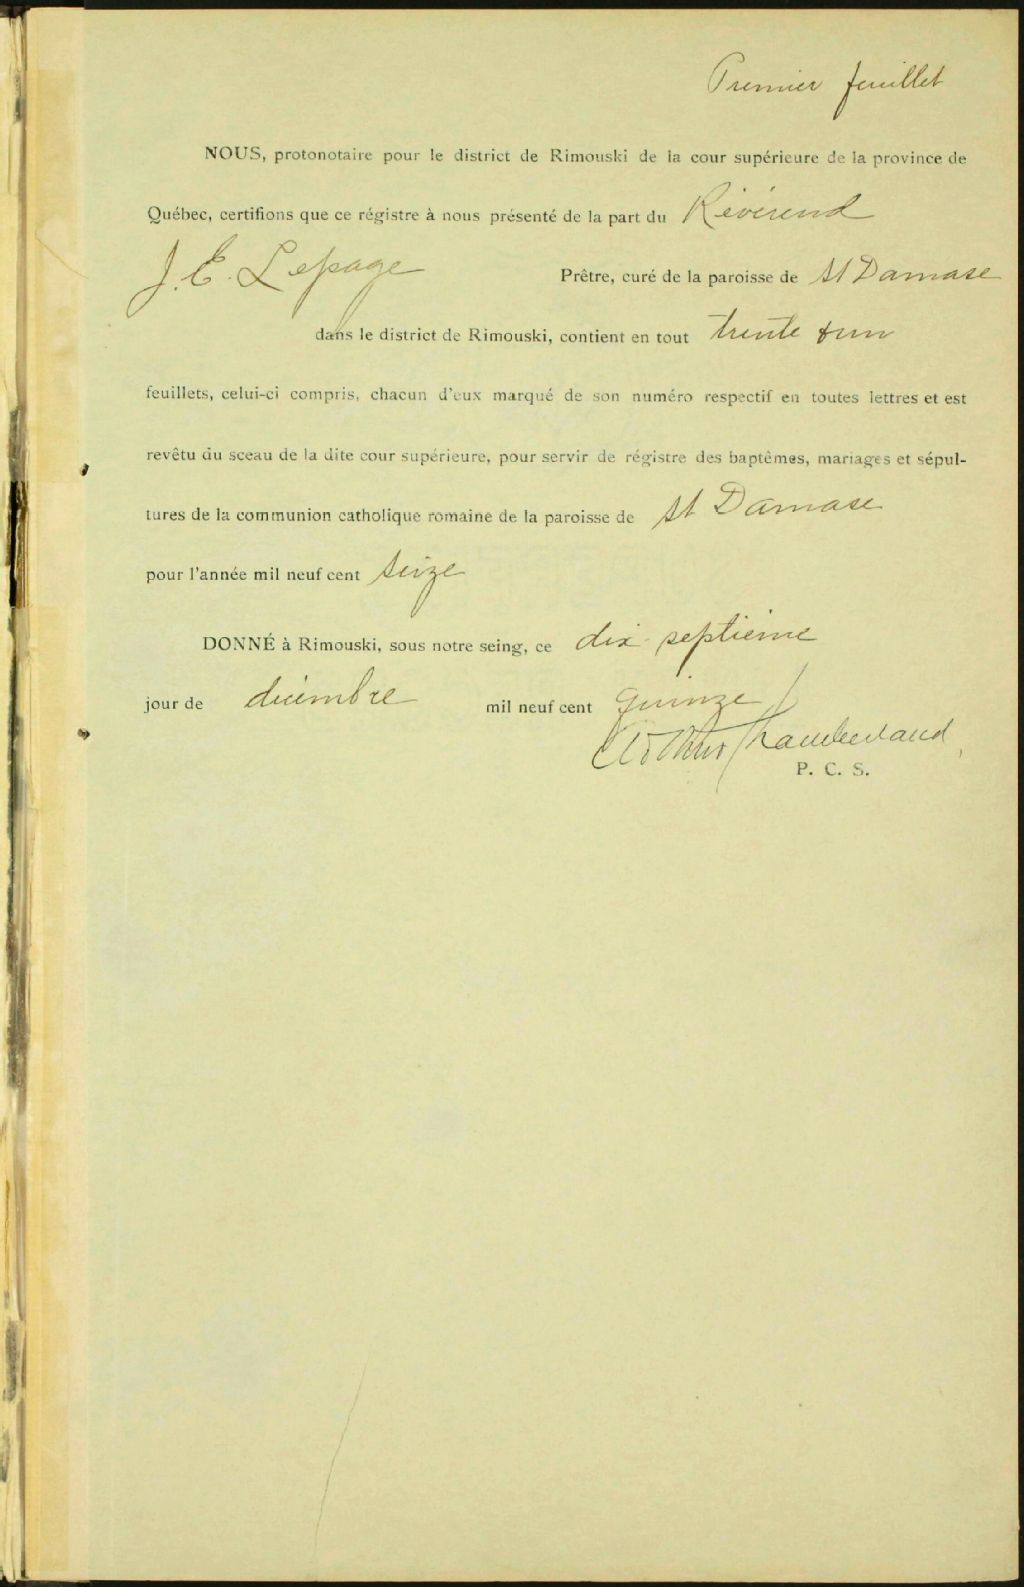 Premier feuillet
NOUS, protonotaire pour le district de Rimouski de la cour supérieure de la province de
Québec, certifions que ce régistre à nous présenté de la part du Révérend
J. E. Lepage Prêtre, curé de la paroisse de St Damase
dans le district de Rimouski, contient en tout trente & un
feuillets, celui-ci compris, chacun d'eux marqué de son numéro respectif en toutes lettres et est
revêtu du sceau de la dite cour supérieure, pour servir de régistre des baptêmes, mariages et sépul-
tures de la communion catholique romaine de la paroisse de St Damase
pour l'année mil neuf cent seize
DONNÉ à Rimouski, sous notre seing, ce dix-septième
jour de décembre mil neuf cent quinze
Arthur Chamberland,
P. C. S.